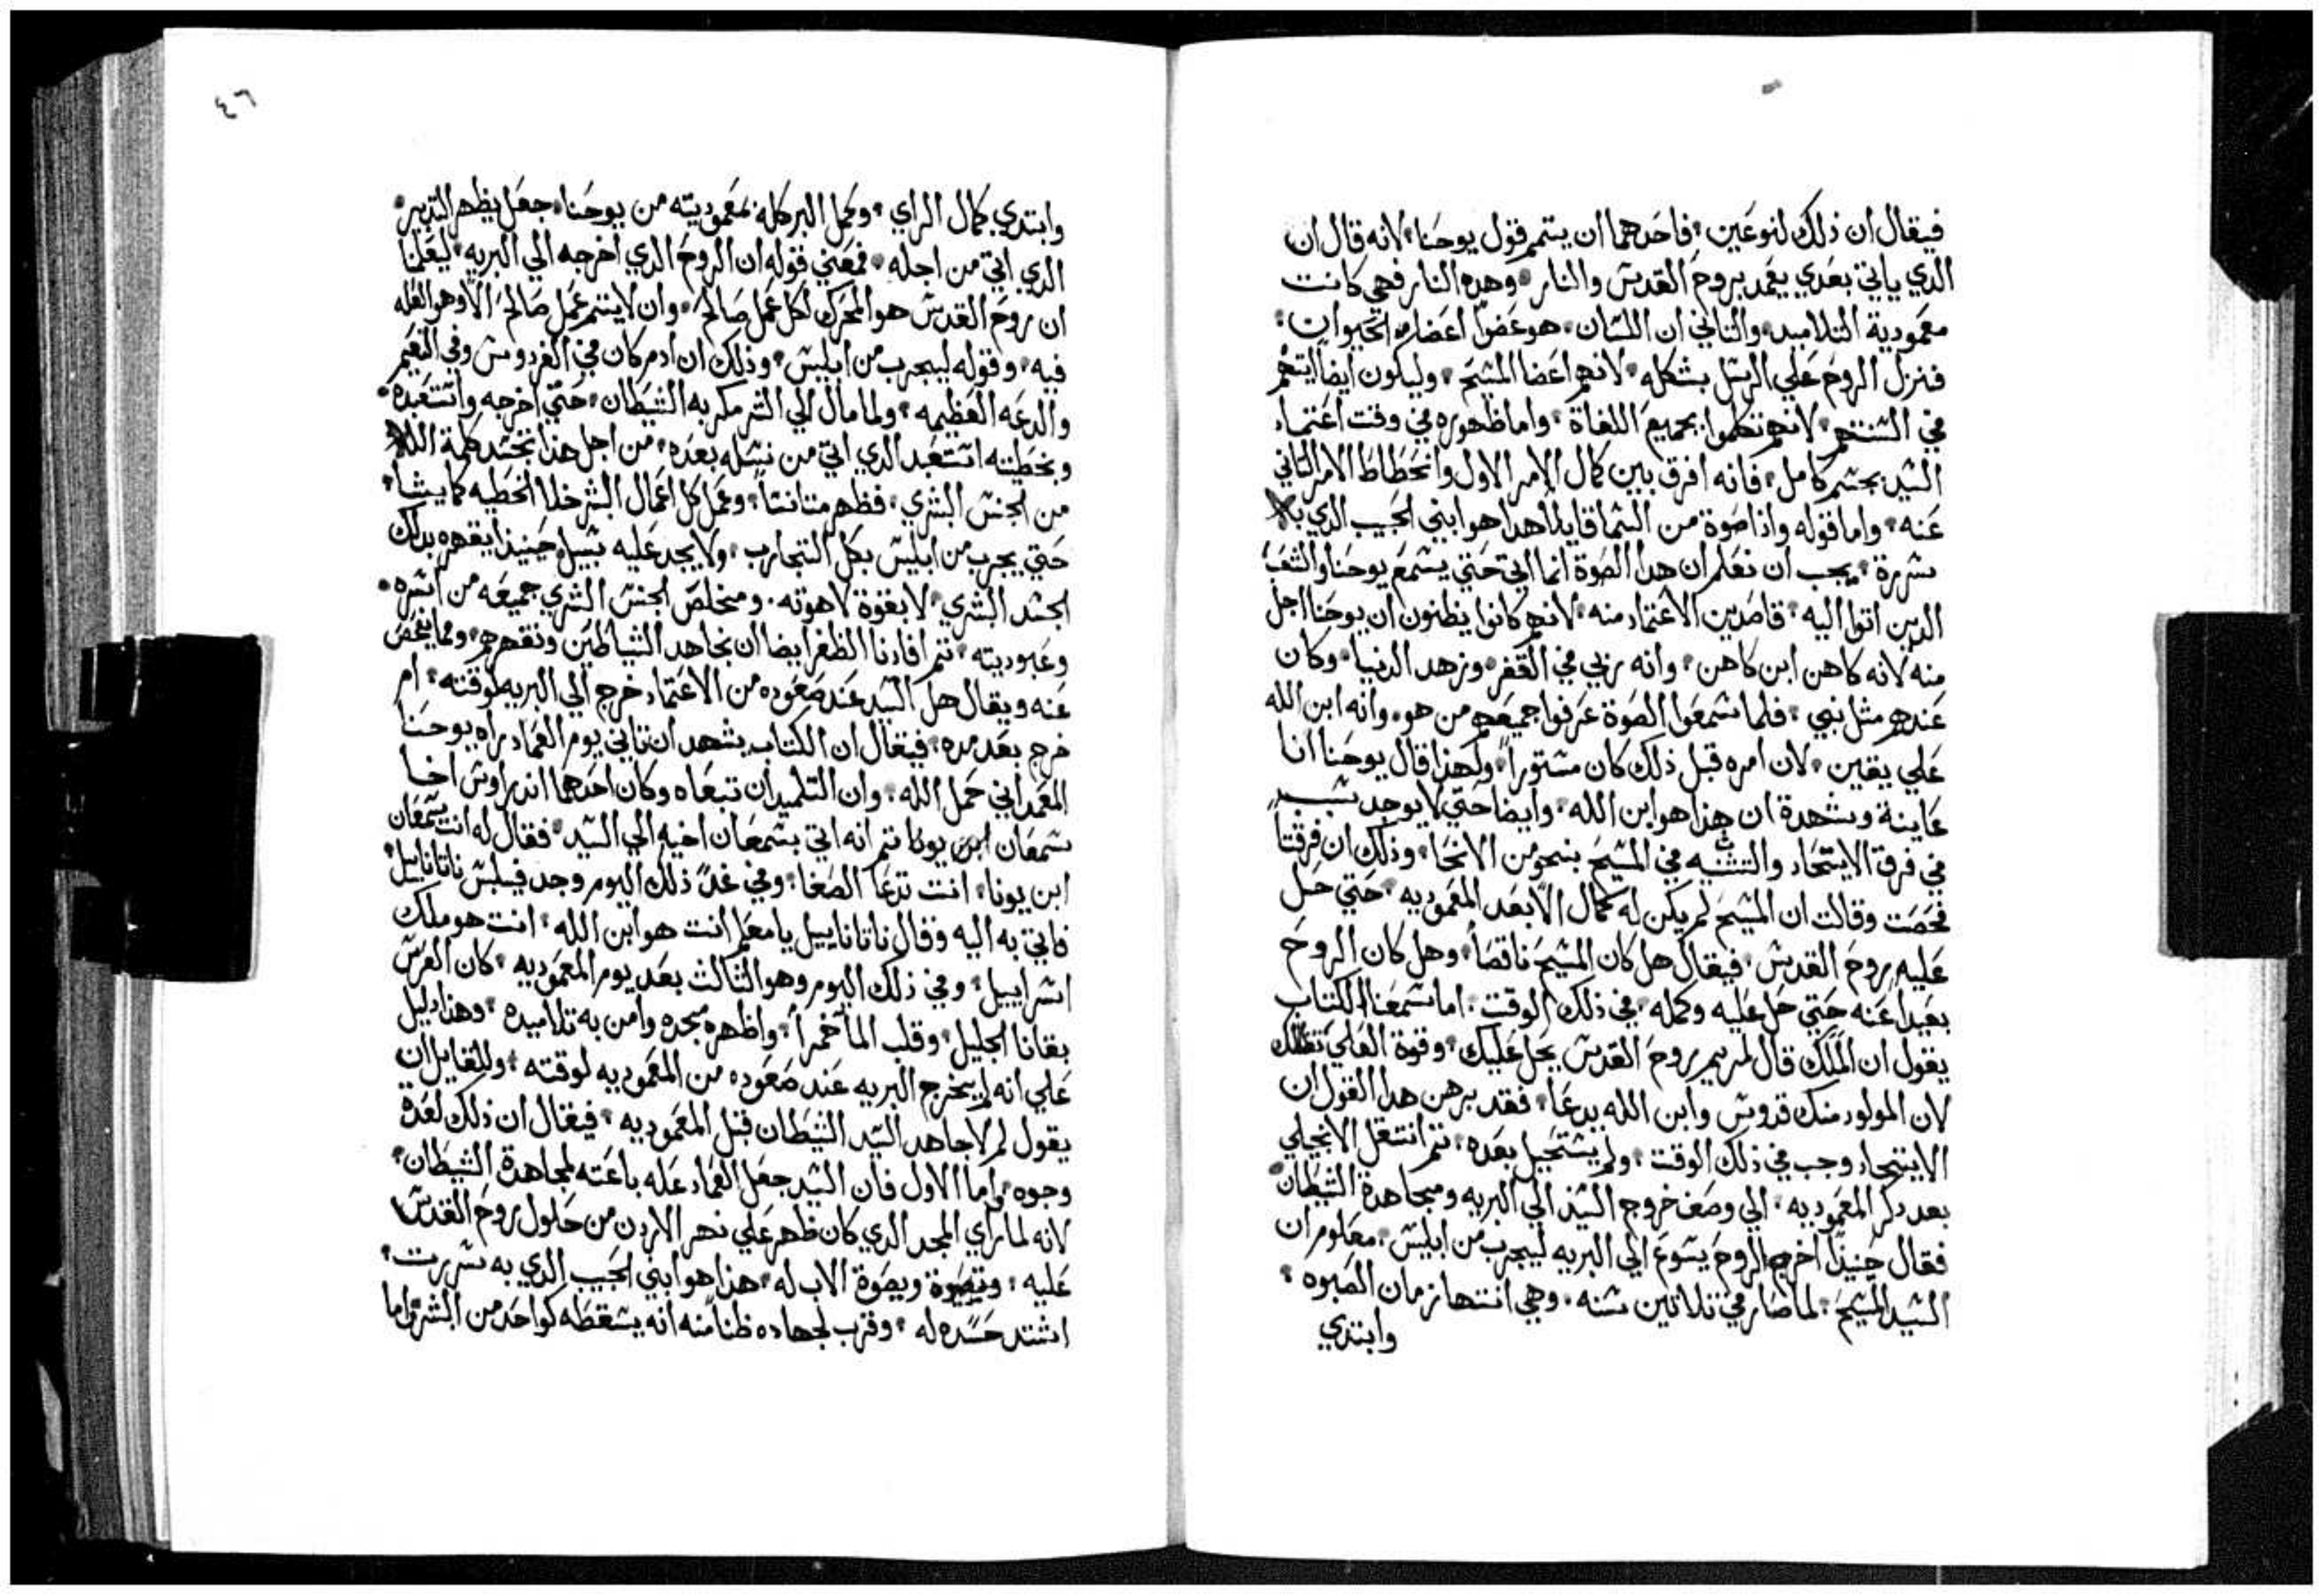 فيقال ان ذلك لنوعين فاحدهما ان يتمم قول يوحنا لانه قال ان
الدي ياتي بعدي يعمد بروح القدس والنار وهده النار فهي كانت
معمودية التلاميد والتاني ان اللسان هو عضوا اعضاء الحيوان
فنزل الروح علي الرسل بشكله لانهم اعضا المسيح وليكون ايضا
في السنتهم لانهم تكلموا بجميع اللغاة واما ظهوره في وقت اعتماد
السيد بجسم كامل فانه افرق بين كمال الامر الاول وانحطاط الامر التاني
عنه واما قوله واذا صوة من السما قايلا هدا هو ابني الحبيب الدي به
سررة يجب ان نعلم ان هدا الصوة انما اتي حتي يسمع يوحنا والشعب
الدين اتوا اليه قاصدين الاعتماد منه لانهم كانوا يظنون ان يوحنا اجل
منه لانه كاهن ابن كاهن وانه ربي في القفر وزهد الدنيا وكان
عندهم مثل نبي فلما سمعوا الصوة عرفوا جميعهم من هو وانه ابن الله
علي يقين لان امره قبل ذلك كان مستورا ولهذا قال يوحنا انا
عاينة وشهدة ان هذا هو ابن الله وايضا حتي لا يوجد سبب
في فرقة الايتحاد والتثنيه في المسيح بنحو من الانحا وذلك ان فرقتا
فحصت وقالت ان المسيح لم يكن له كمال الا بعد المعموديه حتي حل
عليه روح القدس فيقال هل كان المسيح ناقصا وهل كان الروح
بعيدا عنه حتي حل عليه وكمله في ذلك الوقت اما سمعنا الكتاب
يقول ان الملك قال لمريم روح القدس يحل عليك وقوة العلي تظلك
لان المولود منك قدوس وابن الله يدعا فقد برهن هدا القول ان
الايتحاد وجب في ذلك الوقت ولم يستحيل بعده تم انتقل الانجيلي
بعد دكر المعموديه الي وصف خروج السيد الي البريه ومجاهدة الشيطان
فقال حينيذا اخرج الروح يسوع الي البريه ليجرب من ابليس معلوم ان
السيد المسيح لما صار في تلاتين سنه وهي انتها زمان الصبوه
وابتدي
٤٦
وابتدي كمال الراي وكمل البر كله بمعموديته من يوحنا جعل يظهر التدبير
الدي اتي من اجله فمعني قوله ان الروح الدي اخرجه الي البريه ليعلمنا
ان روح القدس هو المحرك لكل عمل صالح وان لا يتم عمل صالح الا وهو العله
فيه وقوله ليجرب من ابليس وذلك ان ادم كان في الفردوس وفي النعيم
والدعه العظيمه ولما مال الي الشر مكر به الشيطان حتي اخرجه واستعبده
وبخطيته استعبد الدي اتي من نسله بعده من اجل هذا تجسد كلمة الله
من الجنس البشري فظهر متانسا وعمل كل اعمال البشر خلا الخطيه كما يشا
حتي يجرب من ابليس بكل التجارب ولا يجد عليه سبيل حينيذا يقهره بدلك
الجسد البشري لا بقوة لاهوته ومخلص الجنس البشري جميعه من اسره
وعبوديته تم افادنا الظفر ايضا ان نجاهد الشياطين ونقهرهم ومما يفحص
عنه ويقال هل السيد عند صعوده من الاعتماد خرج الي البريه لوقته ام
خرج بعد مده فيقال ان الكتاب يشهد ان تاني يوم العماد راه يوحنا
المعمداني حمل الله وان التلميدان تبعاه وكان احدهما اندراوس اخا
سمعان ابن يونا تم انه اتي بسمعان اخيه الي السيد فقال له انت سمعان
ابن يونا انت تدعا الصفا وفي غد ذلك اليوم وجد فيلبس ناتاناييل
فاتي به اليه وقال ناتاناييل يا معلم انت هو ابن الله انت هو ملك
اسراييل وفي ذلك اليوم وهو الثالث بعد يوم المعموديه كان العرس
بقانا الجليل وقلب الما خمرا واظهر مجده وامن به تلاميده وهذا دليل
علي انه لم يخرج البريه عند صعوده من المعموديه لوقته وللقايل ان
يقول لم لا جاهد السيد الشيطان قبل المعموديه فيقال ان ذلك لعدة
وجوه واما الاول فان السيد جعل العماد عله باعته لمجاهدة الشيطان
لانه لما راي المجد الدي كان ظهر علي نهر الاردن من حلول روح القدس
عليه وبصوة الاب له هذا هو ابني الحبيب الدي به سررت
اشتد حسده له وقرب لجهاده ظنا منه انه يسقطه كواحد من البشر واما